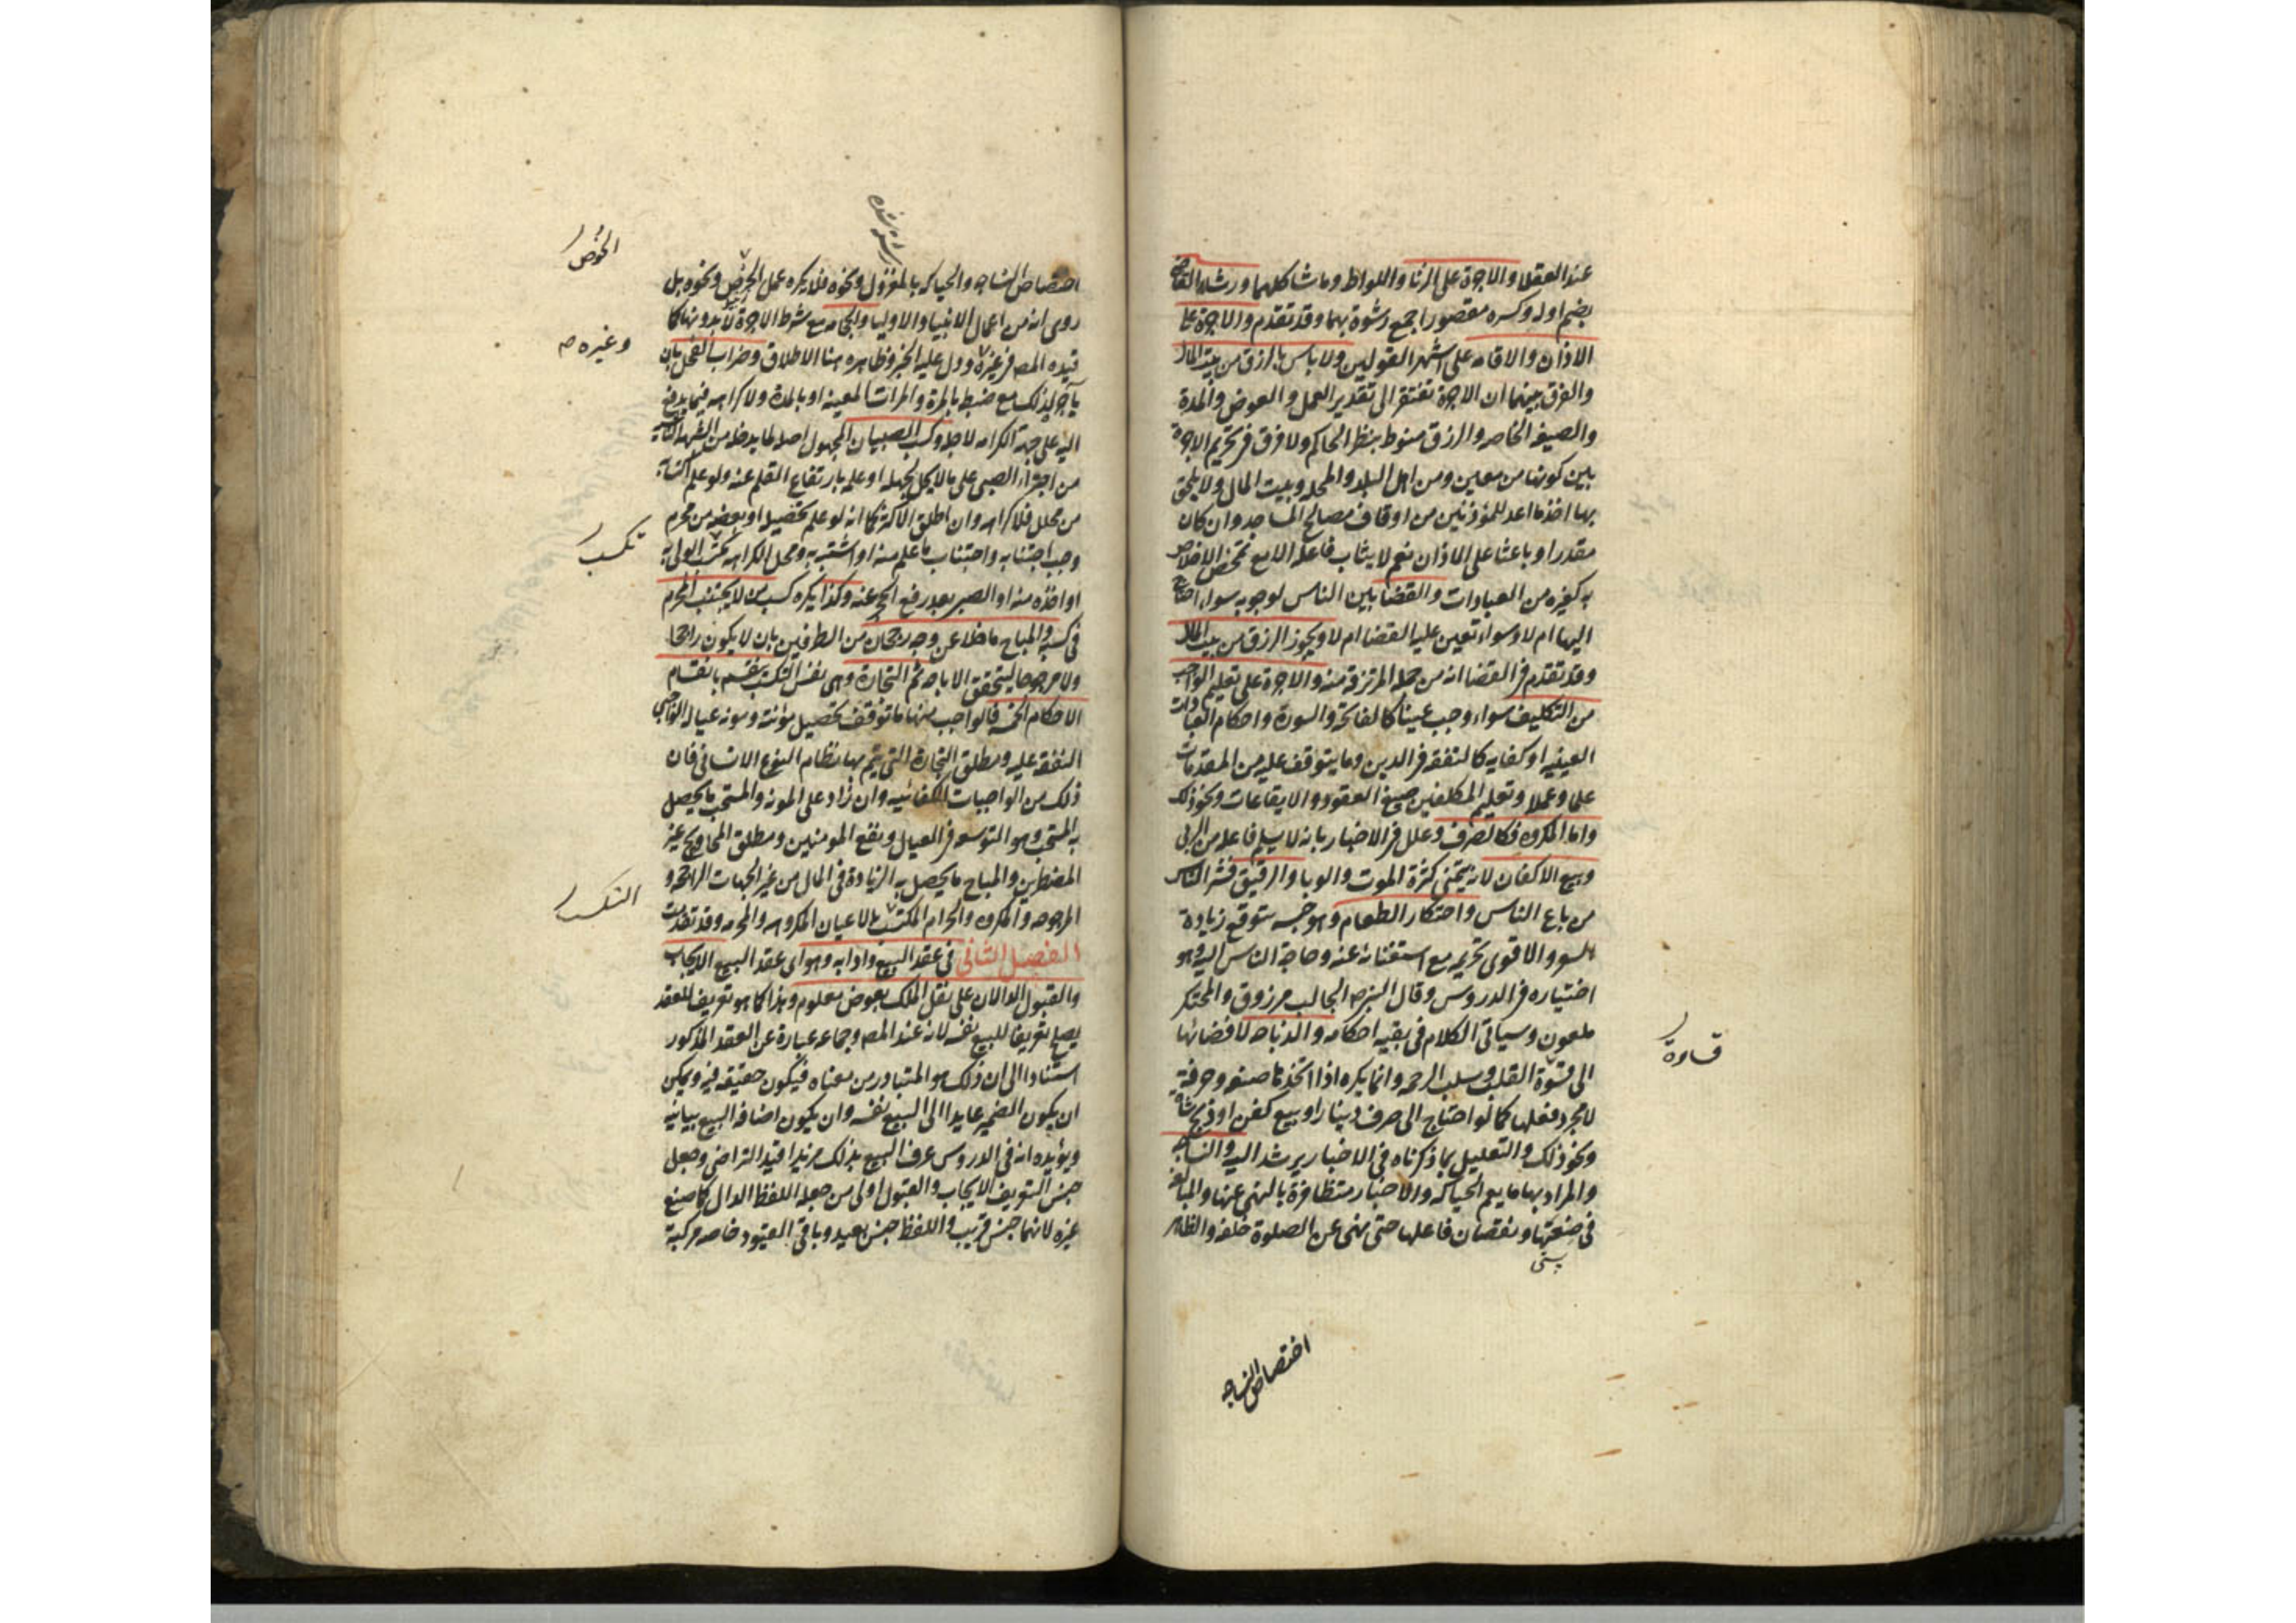 عند العقلا والاجرة على الزنا واللواط وما شاكلهما ورشاء القاضي
بضم اوله وكسره مقصورا جمع رشوة بهما وقد تقدم والاجرة على
الاذان والاقامه على اشهر القولين ولا باس بالرزق من بيت المال
والفرق بينهما ان الاجرة تفتقر الى تقدير العمل والعوض والمدة
والصيغه الخاصه والرزق منوط بنظر الحاكم ولا فرق فى تحريم الاجرة
بين كونها من معين ومن اهل البلد والمحله وبيت المال ولا يلحق
بها اخذ ما اعد للموذنين من اوقاف مصالح المساجد وان كان
مقدرا وباعثا على الاذان نعم لا يثاب فاعله الا مع تمحض الاخلاص
به كغيره من العبادات والقضا بين الناس لوجوبه سواء احتاج
اليها ام لا وسواء تعين عليه القضا ام لا ويجوز الرزق من بيت المال
وقد تقدم فى القضا انه من جمله المرتزقة منه والاجرة على تعليم الواجب
من التكليف سواء وجب عينا كالفاتحة والسورة واحكام العبادات
العينيه او كفايه كالتفقه فى الدين وما يتوقف عليه من المقدمات
علما وعملا وتعليم المكلفين صيغ العقود والايقاعات ونحو ذلك
واما المكروه فكالصرف وعلل فى الاخبار بانه لا يسلم فاعله من الربى
وبيع الاكفان لانه يتمنى كثرة الموت والوبا والرقيق فشر الناس
من باع الناس واحتكار الطعام وهو حبسه بتوقع زيادة
السعر والاقوى تحريمه مع استغنائه عنه وحاجة الناس اليه وهو
اختياره فى الدروس وقال النبى صه الجالب مرزوق والمحتكر
ملعون وسياتى الكلام فى بقيه احكامه والذباحه لافضائها
الى قسوة القلب وسلب الرحمه وانما يكره اذا اتخذها صنعه وحرفة
لا مجرد فعلها كما لو احتاج الى صرف دينار او بيع كفن او ذبح شاة
ونحو ذلك والتعليل بما ذكرناه فى الاخبار يرشد اليه والنساجه
والمراد بها ما يعم الحياكه والاخبار متظافرة بالنهى عنها والمبالغه
فى ضعتها ونقصان فاعلها حتى نهى عن الصلوة خلفه والظاهر
قساوة
اختصاص النساجه
اختصاص النساجه والحياكه بالمغزول ونحوه فلا يكره عمل الخوص ونحوه بل
روى انه من اعمال الانبيا والاوليا والحجامه مع شرط الاجرة لا بدونها كما
قيده المصه فى غيره ودل عليه الخبر وظاهره هنا الاطلاق وضراب الفحل بان
يآجره لذلك مع ضبطه بالمرة والمرات المعينه او بالمدة ولا كراهه فيما يدفع
اليه على جهة الكرامه لاجله وكسب الصبيان المجهول اصله لما يدخله من الشبهه الناشيه
من اجتراء الصبى على ما لا يحل لجهله او علمه بارتفاع القلم عنه ولو علم اكتسابه
من محلل فلا كراهه وان اطلق الاكثر كما انه لو علم تحصيله او بعضه من محرم
وجب اجتنابه واجتناب ما علم منه او اشتبه به ومحل الكراهه تكسب الولى به
او اخذه منه او الصبر بعد رفع الحجر عنه وكذا يكره كسب من لا يجتنب المحرم
فى كسبه والمباح ما خلا عن وجه رجحان من الطرفين بان لا يكون راجحا
ولا مرجوحا ليتحقق الاباحه ثم التجارة وهى نفس التكسب ينقسم بانقسام
الاحكام الخمسه فالواجب منها ما توقف تحصيل مؤنته ومونه عياله الواجبى
النفقه عليه ومطلق التجارة التى يتم بها نظام النوع الانسانى فان
ذلك من الواجبات الكفائيه وان زاد على المونه والمستحب ما يحصل
به المستحب وهو التوسعه فى العيال ونفع المومنين ومطلق المحاويج غير
المضطرين والمباح ما يحصل به الزيادة فى المال من غير الجهات الراجحه و
المرجوحه والمكروه والحرام المكتسب بالاعيان المكروهه والمحرمه وقد تقدمت
الفصل الثانى فى عقد البيع وادابه وهو اى عقد البيع الايجاب
والقبول الدالان على نقل الملك بعوض معلوم وهذا كما هو تعريف للعقد
يصلح تعريفا للبيع نفسه لانه عند المصه وجماعه عبارة عن العقد المذكور
استنادا الى ان ذلك هو المتبادر من معناه فيكون حقيقه فيه ويمكن
ان يكون الضمير عايدا الى البيع نفسه وان يكون اضافة البيع بيانيه
ويؤيده انه فى الدروس عرف البيع بذلك مزيدا قيد التراضى وجعل
جنس التعريف الايجاب والقبول اولى من جعله اللفظ الدال كما صنع
غيره لانهما جنس قريب واللفظ جنس بعيد وباقى القيود خاصه مركبة
الخوص
وغيره صه
تكسب
التكسب